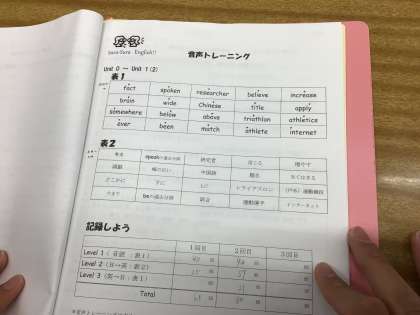 Sara-Sara English!!
音声トレーニング
Unit 0 ～ Unit 1 (2)
表1
fact spoken researcher believe increase
brain wide Chinese title apply
somewhere below above triathlon athletic
ever been match athlete internet
表2
事実 speakの過去分詞 研究者 信じる 増やす
頭脳 幅の広い 中国語 題名 あてはまる
どこかに 下に 上に トライアスロン 運動競技
今まで beの過去分詞 試合 運動選手 インターネット
記録しよう
1回目 2回目 3回目
Level 1 ( 音読 : 表1 )
Level 2 (日→英 : 表2 )
Level 3 (英→日 : 表1 )
Total